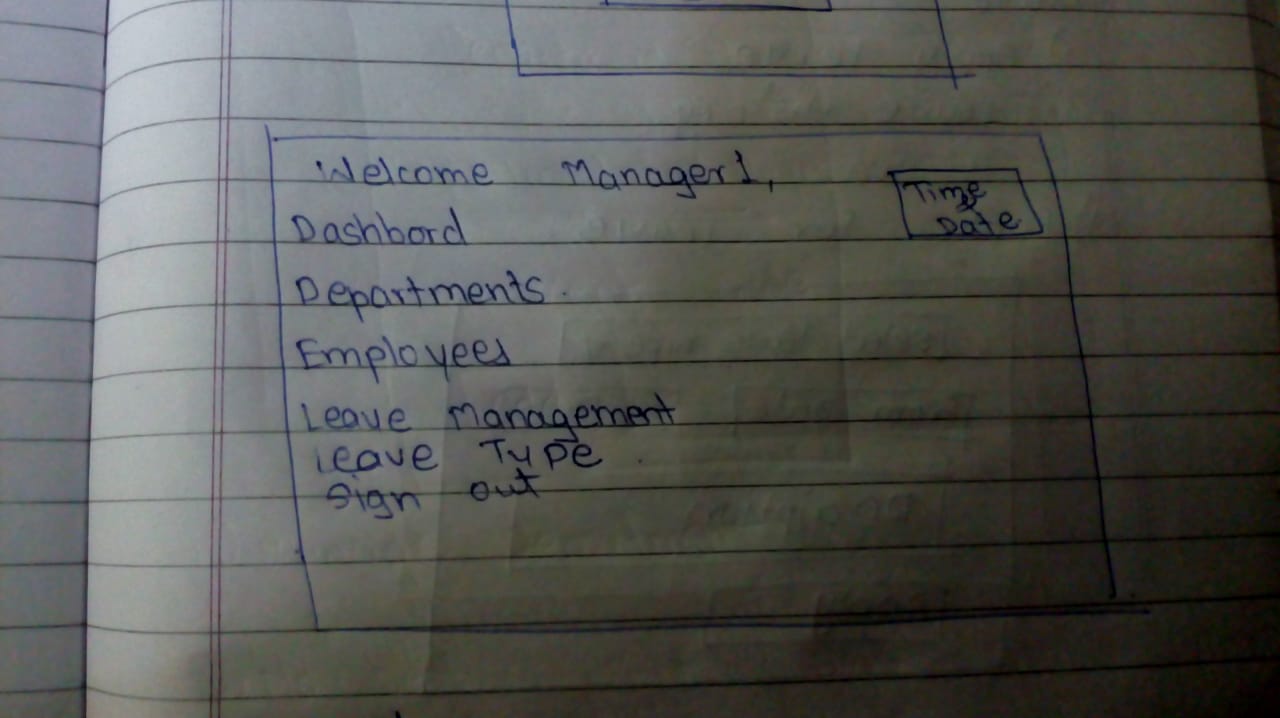 Welcome Manager1,
Time
Date
Dashbord
Departments.
Employees
Leave Management
leave Type.
Sign out